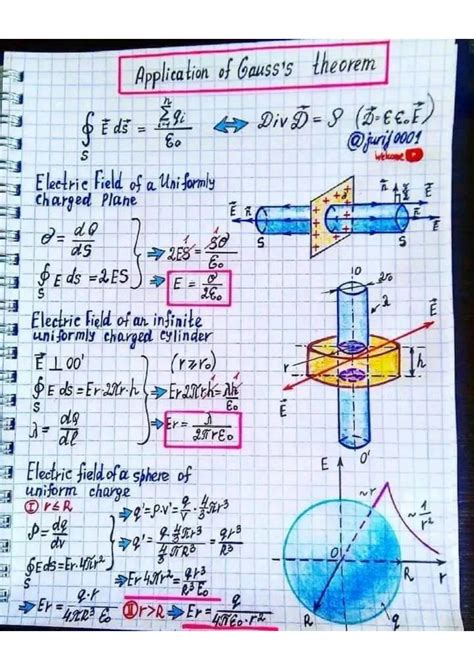 Application of Gauss's theorem
∮ E⃗ ds⃗ = Σqi / ε₀ ⇔ Div D⃗ = ρ (D⃗ = ε ε₀ E⃗)
S n i=1
@jurij0001
Welcome
Electric Field of a Uniformly
charged Plane
σ = dQ / dS
∮ E ds = 2ES
S
⇒ 2ES = Sσ / ε₀
1 1
⇒ E = σ / 2ε₀
E⃗ n⃗ S σ S n⃗ E⃗
Electric Field of an infinite
uniformly charged cylinder
E⃗ ⊥ OO' (r ≥ r₀)
∮ E ds = Er·2πr·h ⇒ Er2πrh = λh / ε₀
S
1 1
λ = dq / dl ⇒ Er = λ / 2πrε₀
O r₀ λ E⃗ r h E⃗ O'
Electric field of a sphere of
uniform charge
I r ≤ R
ρ = dq / dv ⇒ q' = ρ·v' = q / v · 4/3 πr³
⇒ q' = q·4/3πr³ / 4/3πR³ = qr³ / R³
∮ E ds = Er·4πr²
S
⇒ Er4πr² = qr³ / R³ε₀
⇒ Er = q·r / 4πR³ε₀
II r > R ⇒ Er = q / 4πε₀·r²
E ~r ~1/r² O R r R q